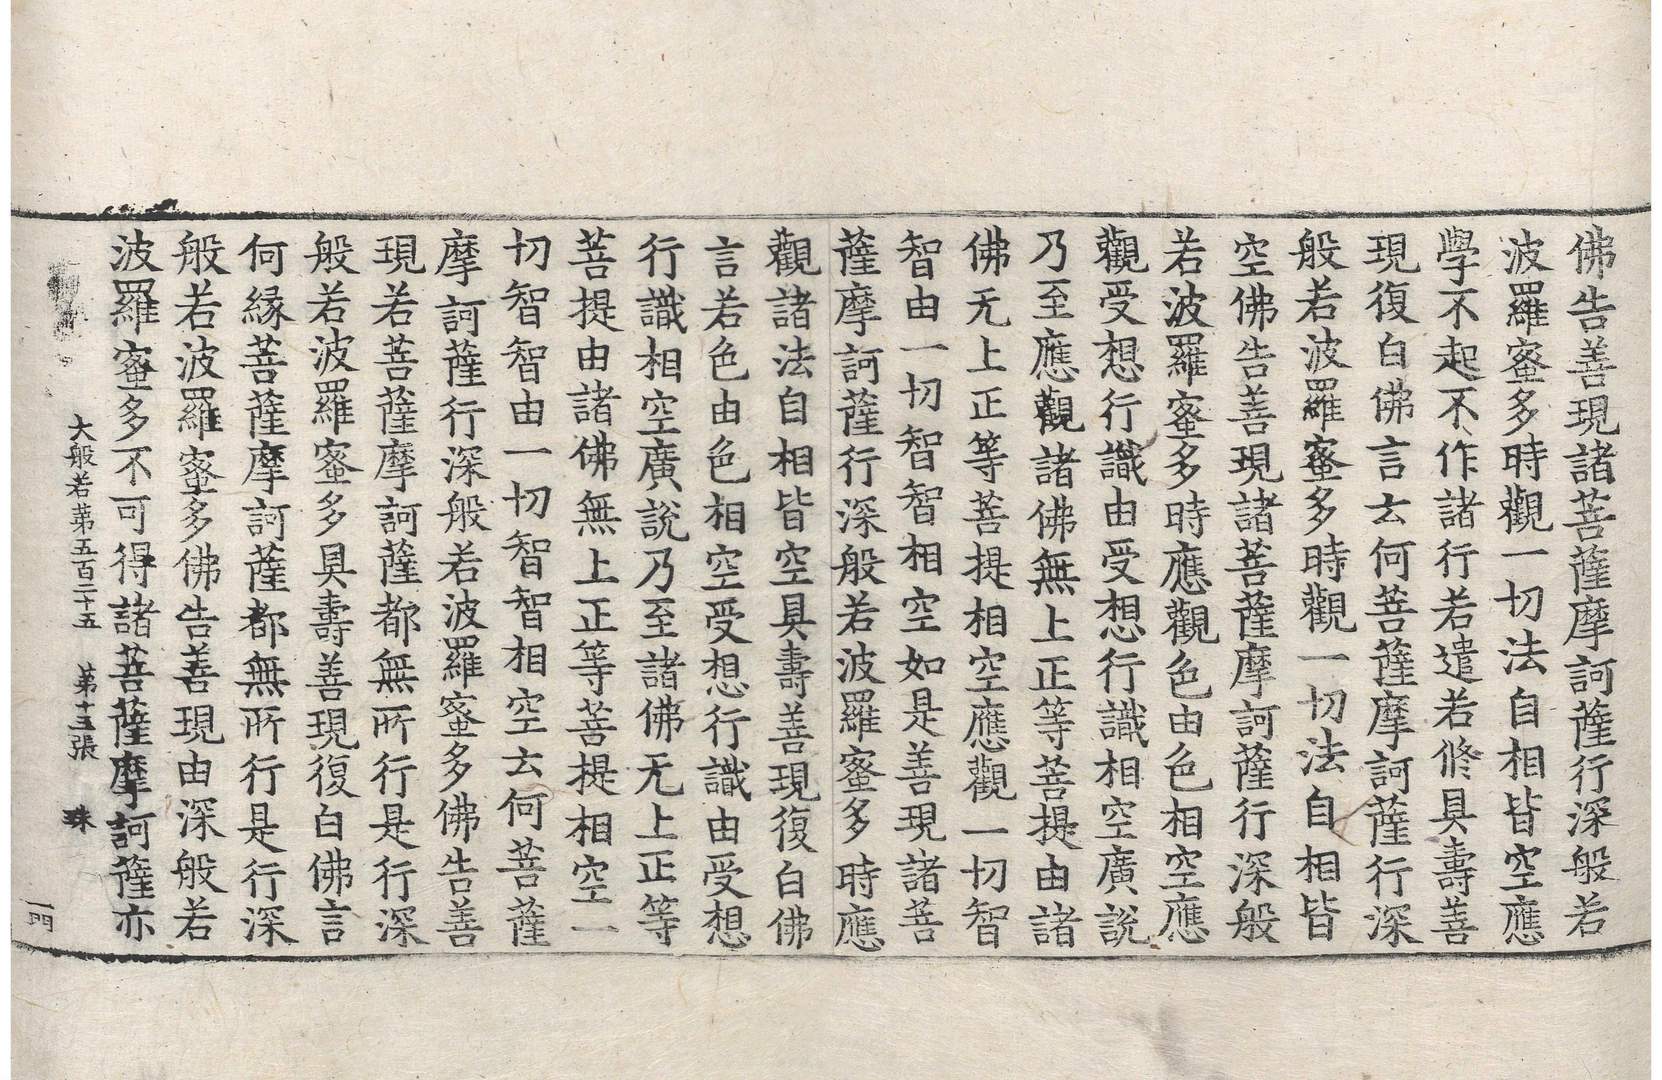 佛告善現諸菩薩摩訶薩行深般若
波羅蜜多時觀一切法自相皆空應
學不起不作諸行若遣若修具壽善
現復白佛言云何菩薩摩訶薩行深
般若波羅蜜多時觀一切法自相皆
空佛告善現諸菩薩摩訶薩行深般
若波羅蜜多時應觀色由色相空應
觀受想行識由受想行識相空廣說
乃至應觀諸佛無上正等菩提由諸
佛无上正等菩提相空應觀一切智
智由一切智智相空如是善現諸菩
薩摩訶薩行深般若波羅蜜多時應
觀諸法自相皆空具壽善現復白佛
言若色由色相空受想行識由受想
行識相空廣說乃至諸佛无上正等
菩提由諸佛無上正等菩提相空一
切智智由一切智智相空云何菩薩
摩訶薩行深般若波羅蜜多佛告善
現若菩薩摩訶薩都無所行是行深
般若波羅蜜多具壽善現復白佛言
何緣菩薩摩訶薩都無所行是行深
般若波羅蜜多佛告善現由深般若
波羅蜜多不可得諸菩薩摩訶薩亦
大般若第五百二十五 第十五張 珠